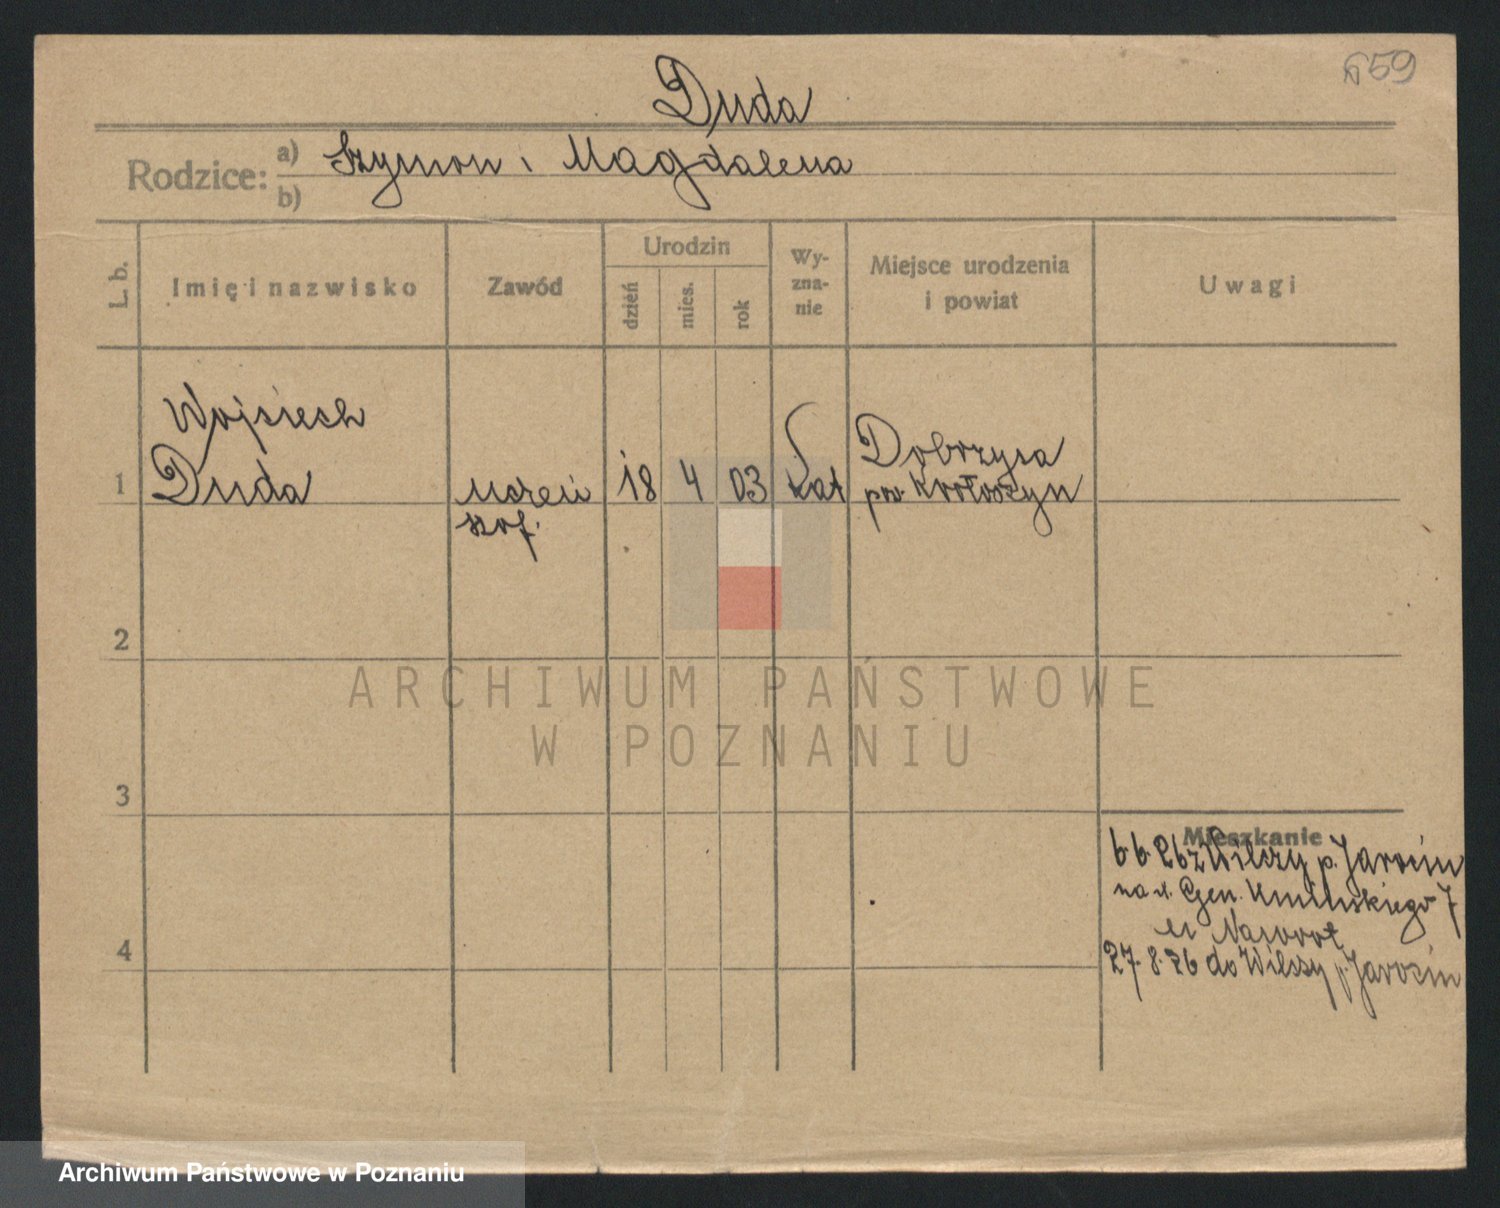 659
Duda
Rodzice:
a) Szymon i Magdalena
b)
L. b.
Imię i nazwisko
Zawód
Urodzin
dzień
mies.
rok
Wy-
zna-
nie
Miejsce urodzenia
i powiat
Uwagi
Wojciech
1 Duda uczeń 18 4 03 kat Dobrzyca
szof. pow. Krotoszyn
2
3
4
ARCHIWUM PAŃSTWOWE
W POZNANIU
Mieszkanie
6.6.26 z Wilczy p. Jarocin
na u. Gen. Umińskiego 7
u Nawrot
27.8.26 do Wilczy p. Jarocin
Archiwum Państwowe w Poznaniu